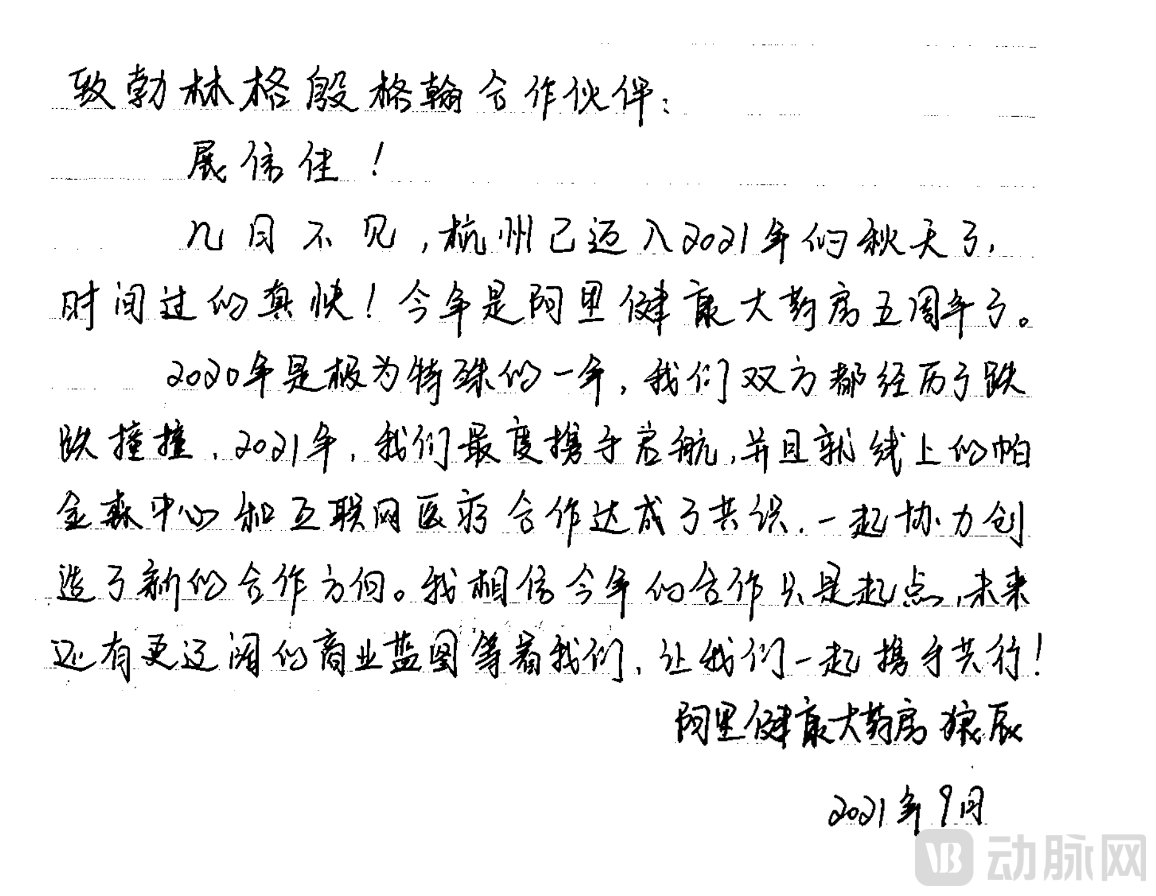 致勃林格殷格翰合作伙伴：
展信佳！
几日不见，杭州已迈入2021年的秋天了，
时间过的真快！今年是阿里健康大药房五周年了。
2020年是极为特殊的一年，我们双方都经历了跌
跌撞撞，2021年，我们最度携手启航，并且就线上的帕
金森中心和互联网医疗合作达成了共识，一起协力创
造了新的合作方向。我相信今年的合作只是起点，未来
还有更辽阔的商业蓝图等着我们，让我们一起携手共行！
阿里健康大药房 狼辰
2021年9月
VB 动脉网